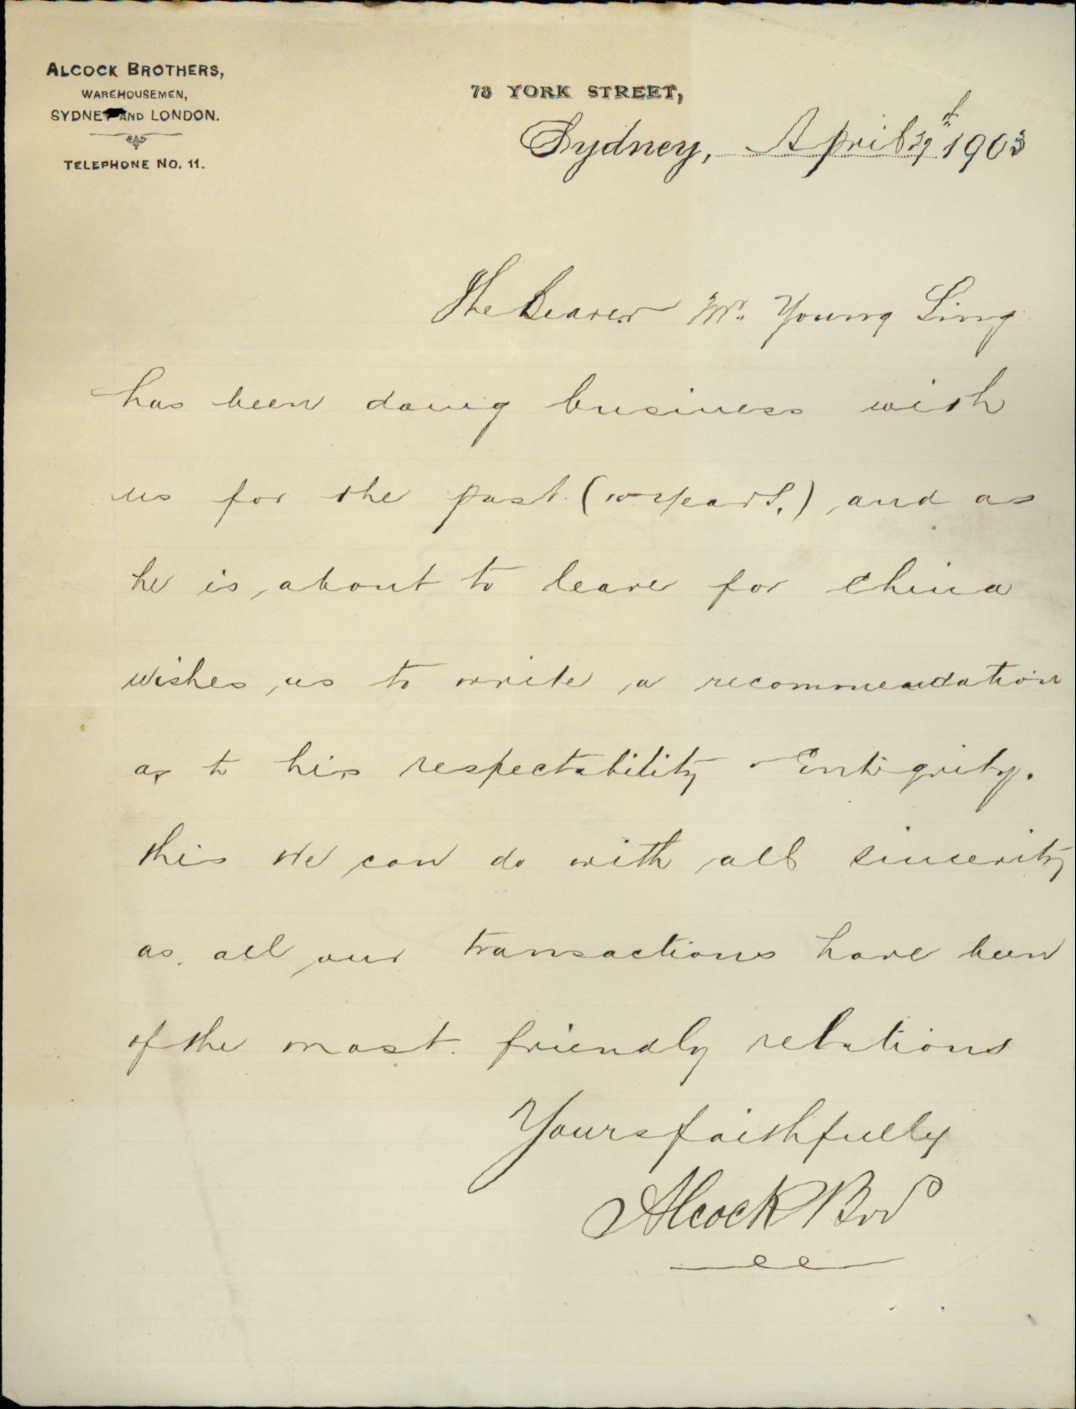 ALCOCK BROTHERS,
WAREHOUSEMEN,
SYDNEY AND LONDON.
TELEPHONE NO. 11.
73 YORK STREET,
Sydney, April 29th 1903
The bearer Mr. Young Sing
has been doing business with
us for the past (10 years.) and as
he is about to leave for China
wishes us to write a recommendation
as to his respectability Entigrity.
this we can do with all sincerity
as all our transactions have been
of the most friendly relations
Yours faithfully
Alcock Bros